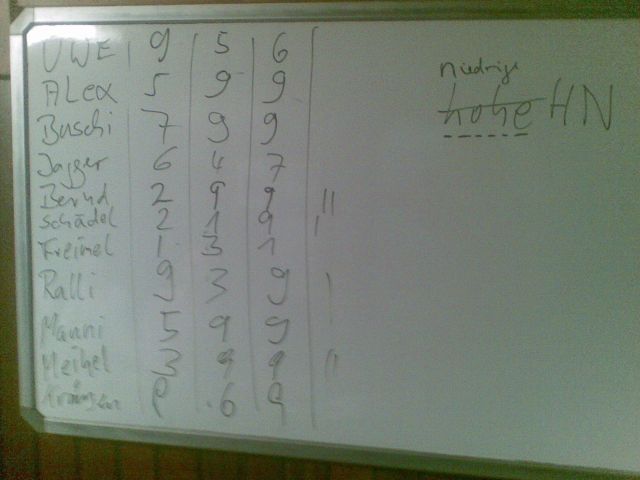 UWE 9 5 6
ALex 5 9 9
Buschi 7 9 9
Jagger 6 4 7
Bernd 2 9 9 ||
Schädel 2 1 9 |
Freimel 1 3 1
Ralli 9 3 9 |
Manni 5 9 9
Meikel 3 9 9 ||
6 9
niedrige
hohe HN